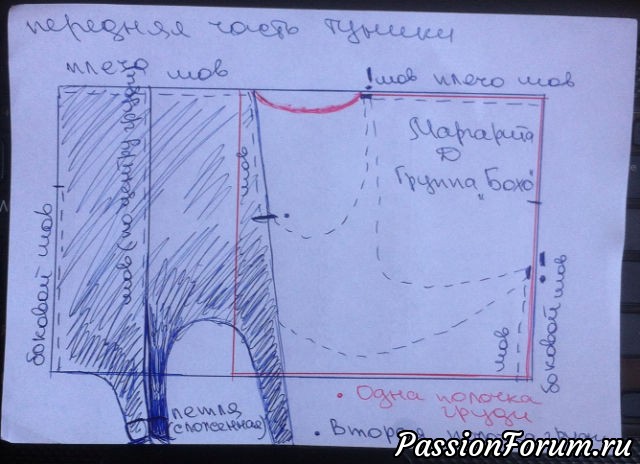 передняя часть туники
плечо шов
!шов плечо шов
Маргарита
Д
Группа "Бохо"
боковой шов
шов (по центру груди)
шов
шов
боковой шов
петля
(сложенная)
• Одна полочка
груди
• Вторая
PassionForum.ru